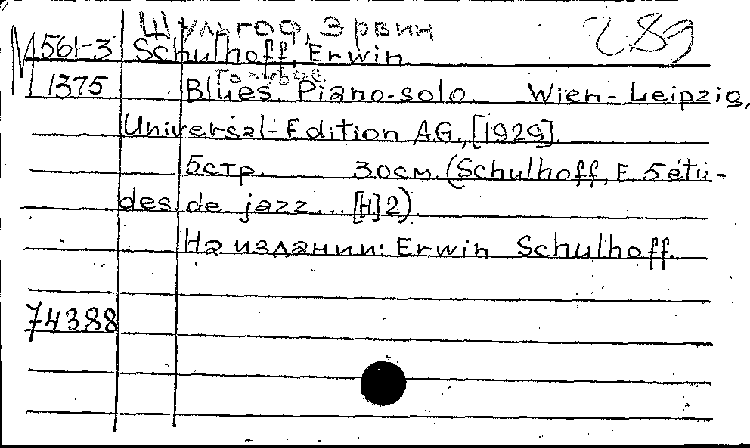 Шульгоф, Эрвин 289
М 561-3 Schulhoff, Erwin
1375 Blues. Piano-solo Wien-Leipzig,
Universal-Edition AG, [1929]
5 стр. 30 см. (Schulhoff, E. 5 étu-
des de jazz... [H] 2)
На издании: Erwin Schulhoff.
74388